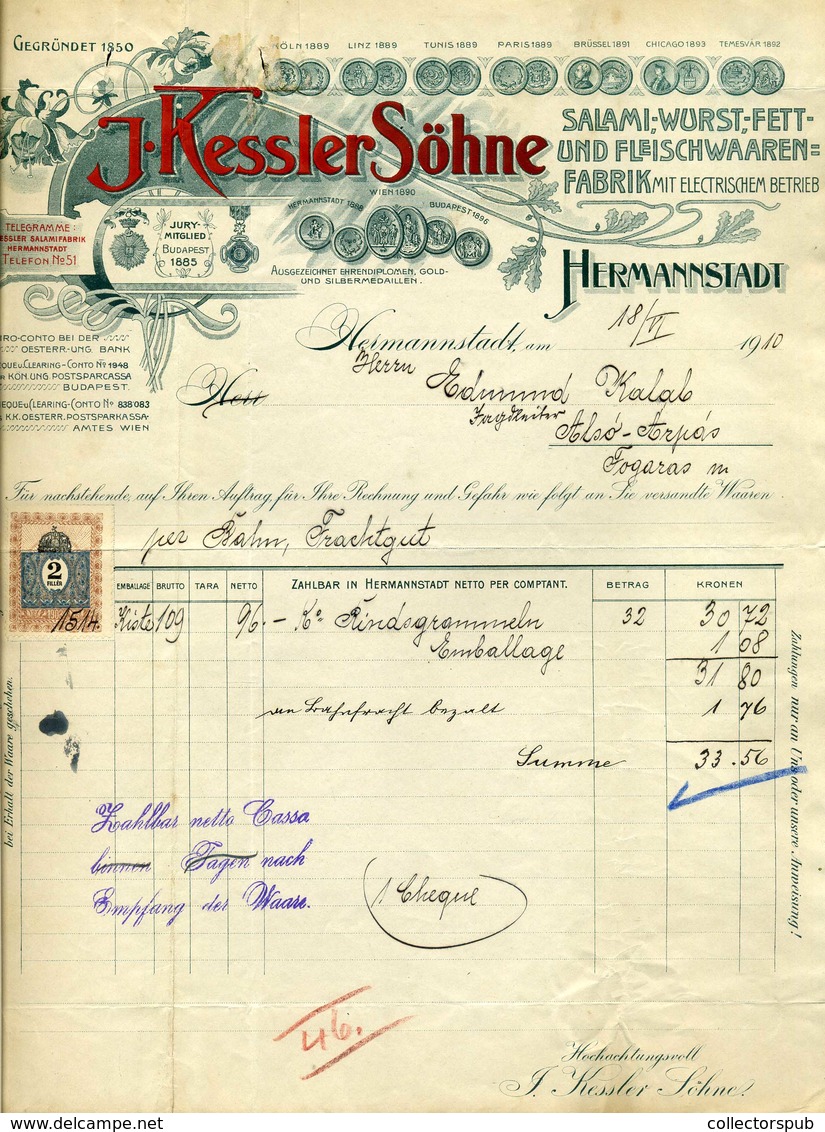 GEGRÜNDET 1850
KÖLN 1889 LINZ 1889 TUNIS 1889 PARIS 1889 BRÜSSEL 1891 CHICAGO 1893 TEMESVÁR 1892
J. Kessler Söhne
SALAMI-, WURST-, FETT-
UND FLEISCHWAAREN=
FABRIK MIT ELECTRISCHEM BETRIEB
WIEN 1890
HERMANNSTADT BUDAPEST 1896
TELEGRAMME:
KESSLER SALAMIFABRIK
HERMANNSTADT
TELEFON No 51
JURY-
MITGLIED
BUDAPEST
1885
AUSGEZEICHNET EHRENDIPLOMEN, GOLD-
UND SILBERMEDAILLEN.
HERMANNSTADT
GIRO-CONTO BEI DER
OESTERR.-UNG. BANK
CLEARING-CONTO No 1948
KÖN. UNG. POSTSPARCASSA
BUDAPEST.
CLEARING-CONTO No 838'083
K.K. OESTERR. POSTSPARKASSA-
AMTES WIEN
Hermannstadt, am 18/VI 1910
Herrn
Herr Edmund Kalab
Jagdleiter Alsó-Árpás
Fogaras m
Für nachstehende, auf Ihren Auftrag, für Ihre Rechnung und Gefahr wie folgt an Sie versandte Waaren.
per Bahn, Frachtgut
2
FILLÉR
EMBALLAGE BRUTTO TARA NETTO ZAHLBAR IN HERMANNSTADT NETTO PER COMPTANT. BETRAG KRONEN
1514. Kiste 109 96.- Ko Rindsgrammeln 32 30 72
Emballage 1 08
31 80
an Bahnfracht bezalt 1 76
Summe 33.56
bei Erhalt der Waare geschehen.
Zahlungen nur an Uns oder unsere Anweisung!
Zahlbar netto Cassa
binnen Tagen nach
Empfang der Waare.
1 Cheque
46.
Hochachtungsvoll
J. Kessler Söhne.
collectorspub